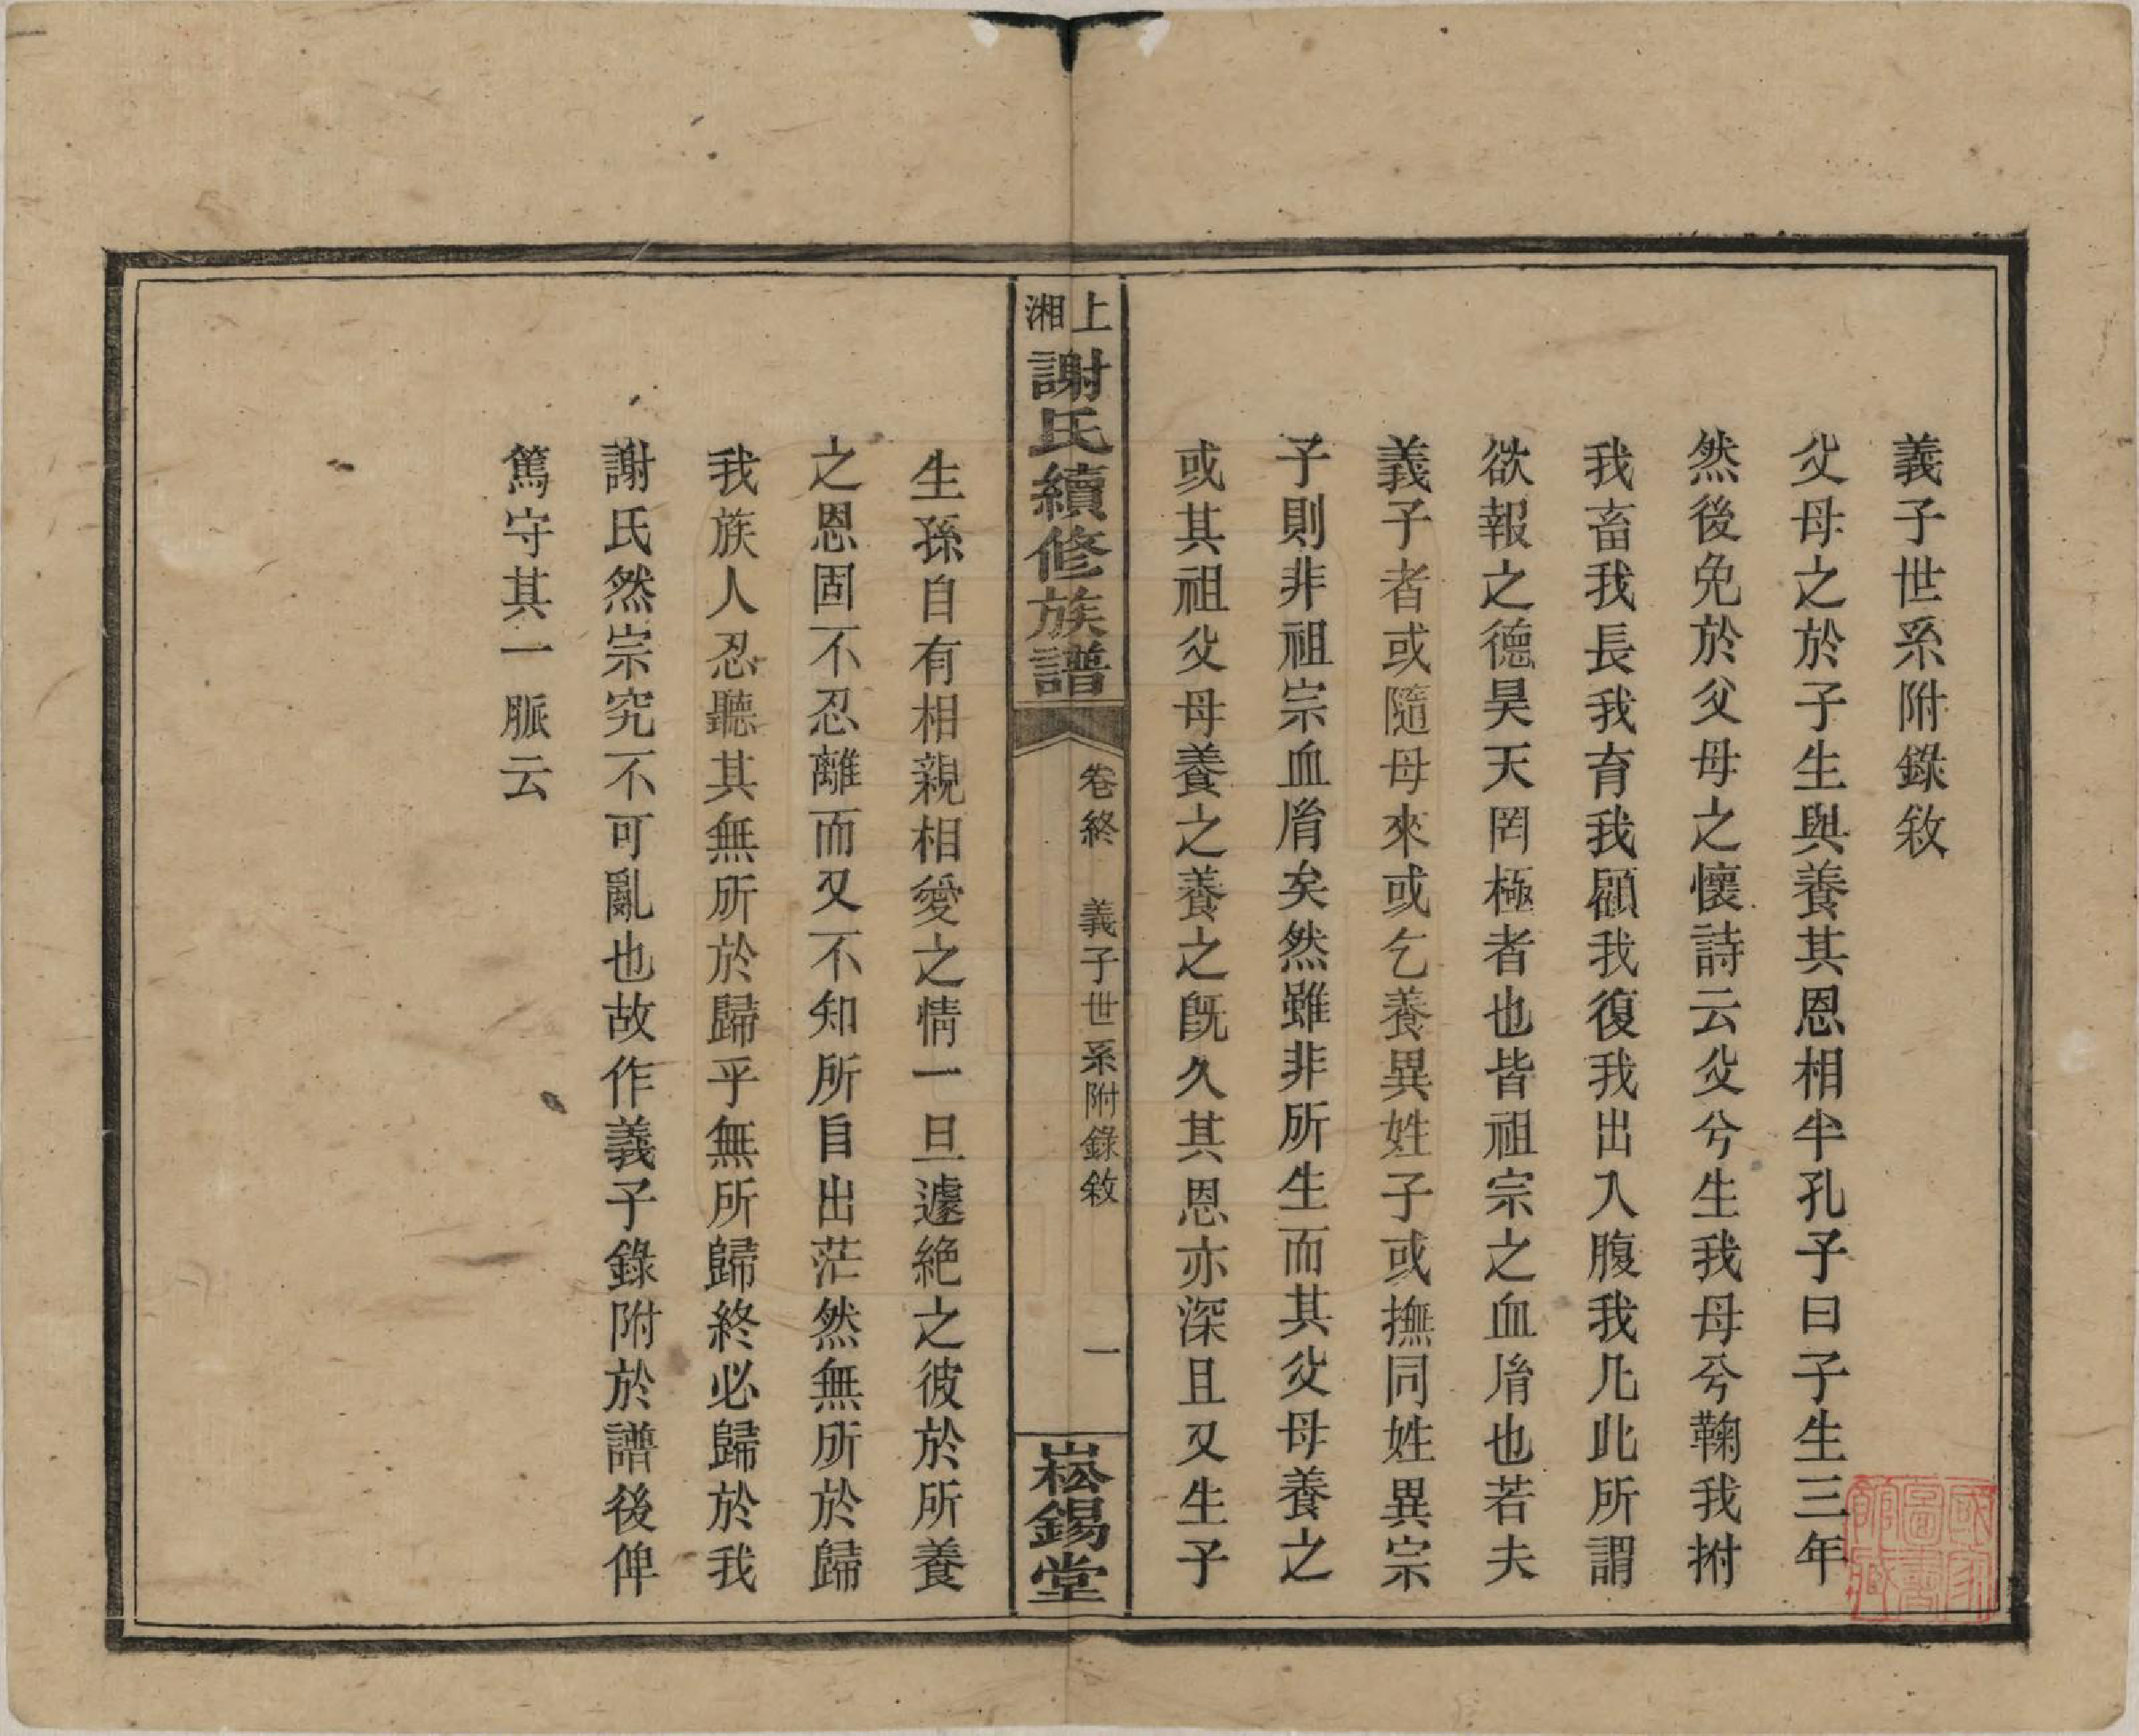 義子世系附錄敘
父母之於子生與養其恩相半孔子曰子生三年
然後免於父母之懷詩云父兮生我母兮鞠我拊
我畜我長我育我顧我復我出入腹我凡此所謂
欲報之德昊天罔極者也皆祖宗之血胤也若夫
義子者或隨母來或乞養異姓子或撫同姓異宗
子則非祖宗血胤矣然雖非所生而其父母養之
或其祖父母養之養之旣久其恩亦深且又生子
上湘
謝氏續修族譜
卷終 義子世系附錄敘 一
崧錫堂
生孫自有相親相愛之情一旦遽絕之彼於所養
之恩固不忍離而又不知所自出茫然無所於歸
我族人忍聽其無所於歸乎無所歸終必歸於我
謝氏然宗究不可亂也故作義子錄附於譜後俾
篤守其一脈云
國家圖書館藏